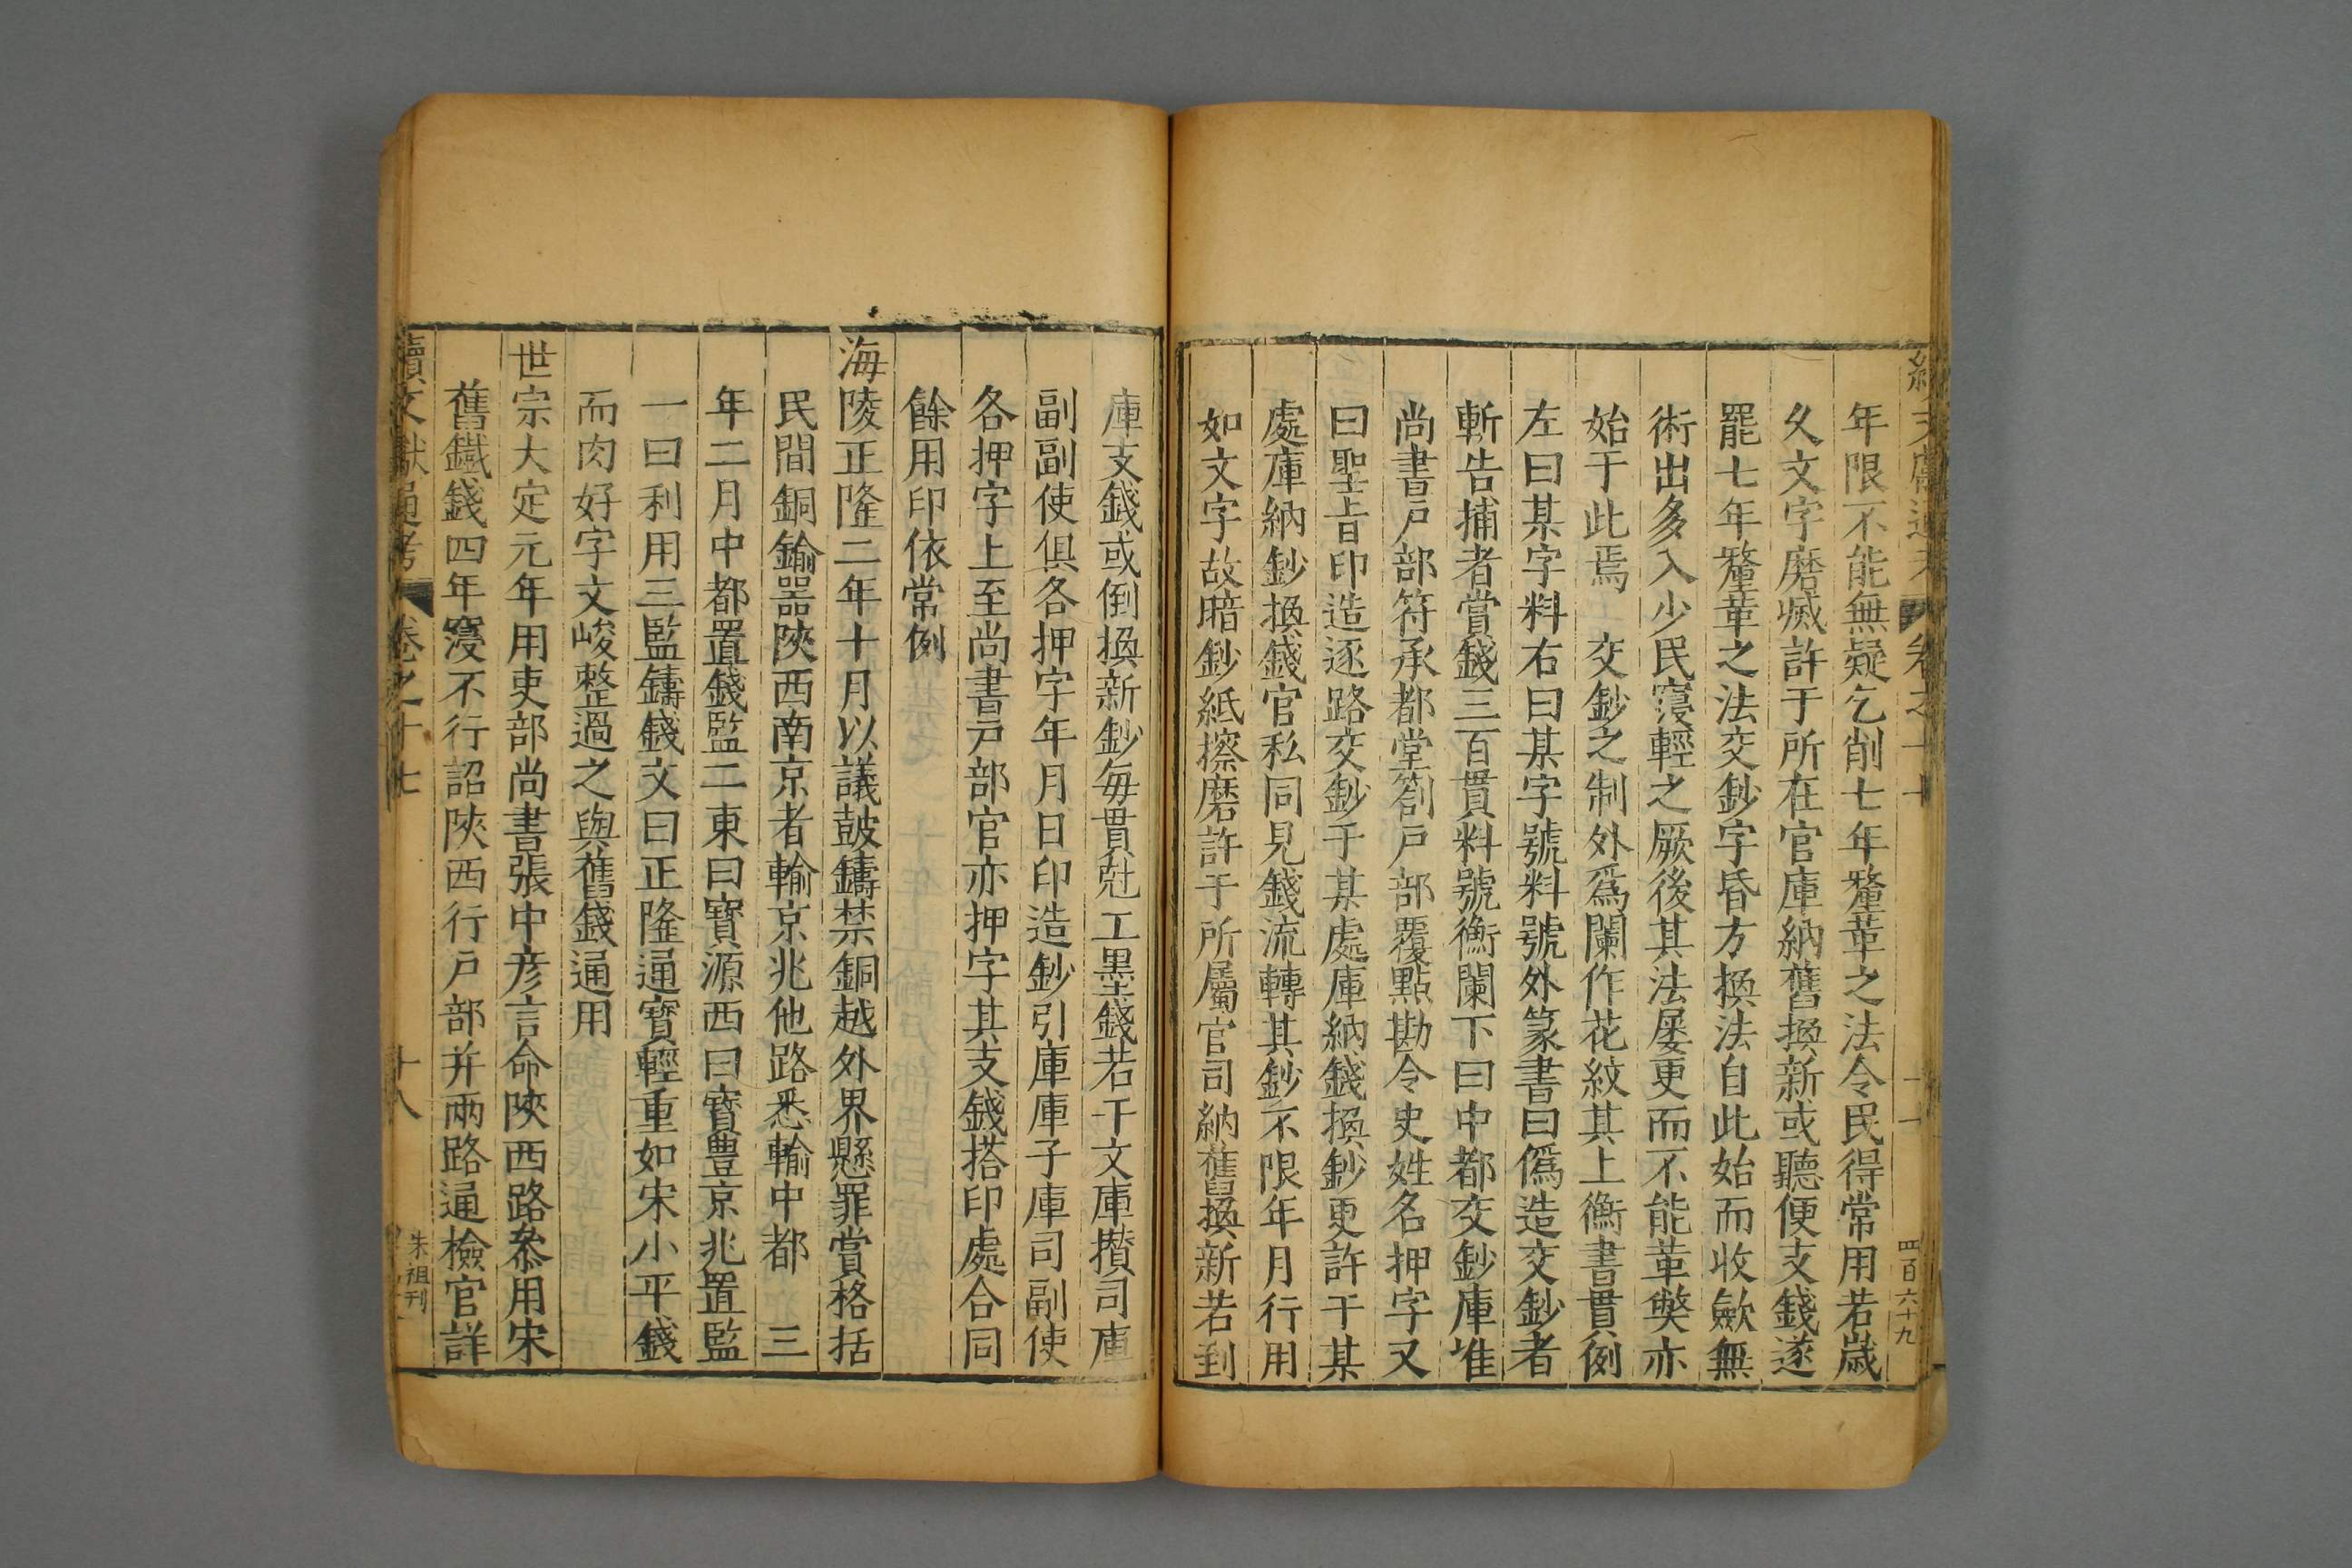 年限不能無疑乞削七年釐革之法令民得常用若歲
久文字磨滅許于所在官庫納舊換新或聽便支錢遂
罷七年釐革之法交鈔字昏方換法自此始而收歛無
術出多入少民寖輕之厥後其法屡更而不能革獘亦
始于此焉 交鈔之制外爲闌作花紋其上衡書貫例
左曰某字料右曰某字號料號外篆書曰僞造交鈔者
斬告捕者賞錢三百貫料號衡闌下曰中都交鈔庫准
尚書戸部符承都堂劄戸部覆點勘令史姓名押字又
曰聖旨印造逐路交鈔于某處庫納錢換鈔更許于某
處庫納鈔換錢官私同見錢流轉其鈔不限年月行用
如文字故暗鈔紙擦磨許于所屬官司納舊換新若到
四百六十九
庫支錢或倒換新鈔每貫尅工墨錢若干文庫攅司庫
副副使俱各押字年月日印造鈔引庫庫子庫司副使
各押字上至尚書戸部官亦押字其支錢搭印處合同
餘用印依常例
海陵正隆二年十月以議鼓鑄禁銅越外界懸罪賞格括
民間銅鍮噐陝西南京者輸京兆他路悉輸中都 三
年二月中都置錢監二東曰寶源西曰寶豊京兆置監
一曰利用三監鑄錢文曰正隆通寶輕重如宋小平錢
而肉好字文峻整過之與舊錢通用
世宗大定元年用吏部尚書張中彦言命陝西路叅用宋
舊鐵錢四年寖不行詔陝西行戸部并兩路通檢官詳
續文獻通考 卷之十七 十八 朱祖刊